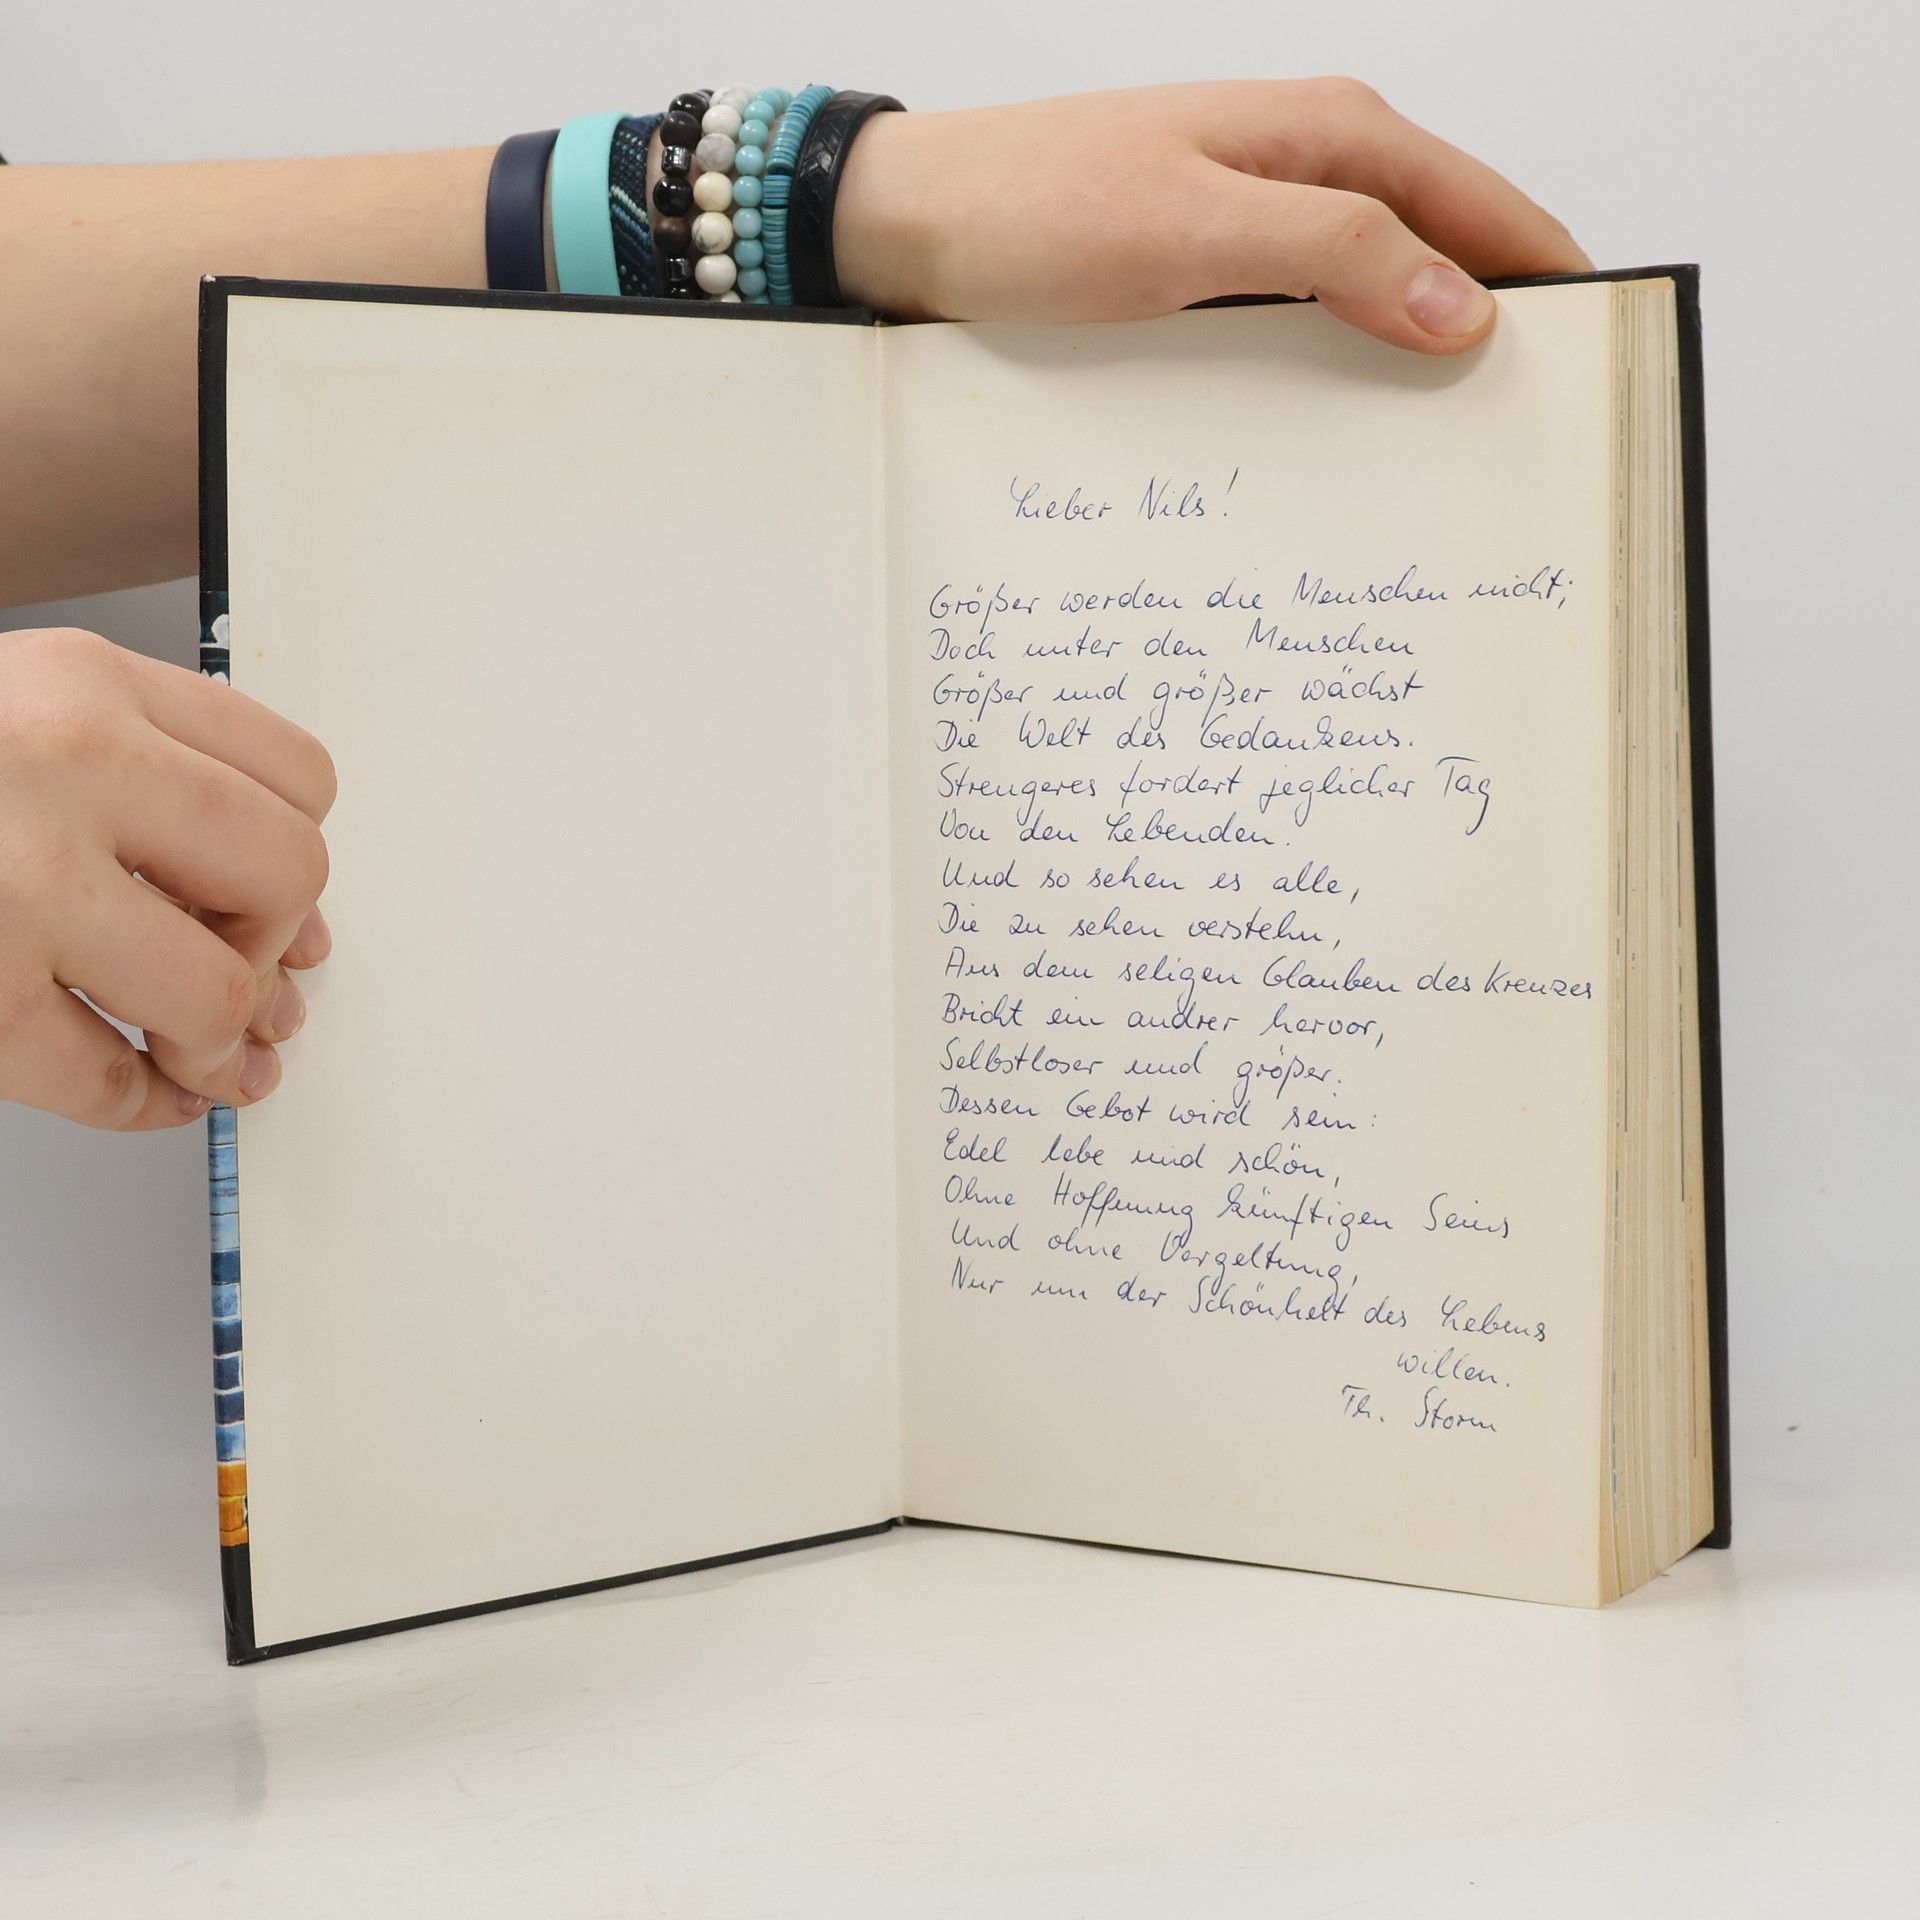 Lieber Nils!
Größer werden die Menschen nicht;
Doch unter den Menschen
Größer und größer wächst
Die Welt des Gedankens.
Strengeres fordert jeglicher Tag
Von den Lebenden.
Und so sehen es alle,
Die zu sehen verstehn,
Aus dem seligen Glauben des Kreuzes
Bricht ein andrer hervor,
Selbstloser und größer.
Dessen Gebot wird sein:
Edel lebe und schön,
Ohne Hoffnung künftigen Seins
Und ohne Vergeltung,
Nur um der Schönheit des Lebens
willen.
Th. Storm